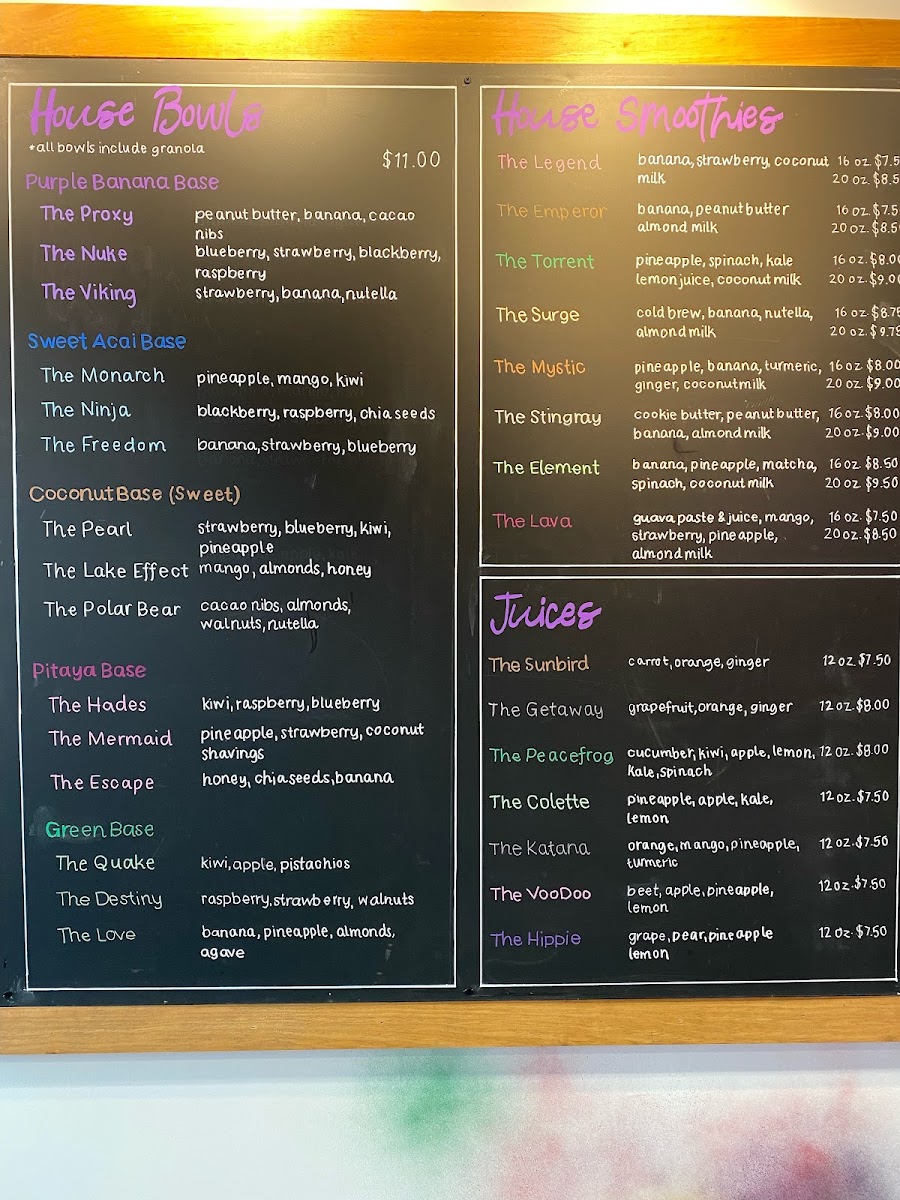 House Bowls
*all bowls include granola
$11.00
Purple Banana Base
The Proxy peanut butter, banana, cacao
nibs
The Nuke blueberry, strawberry, blackberry,
raspberry
The Viking strawberry, banana, nutella
Sweet Acai Base
The Monarch pineapple, mango, kiwi
The Ninja blackberry, raspberry, chia seeds
The Freedom banana, strawberry, blueberry
Coconut Base (Sweet)
The Pearl strawberry, blueberry, kiwi,
pineapple
The Lake Effect mango, almonds, honey
The Polar Bear cacao nibs, almonds,
walnuts, nutella
Pitaya Base
The Hades kiwi, raspberry, blueberry
The Mermaid pineapple, strawberry, coconut
shavings
The Escape honey, chia seeds, banana
Green Base
The Quake kiwi, apple, pistachios
The Destiny raspberry, strawberry, walnuts
The Love banana, pineapple, almonds,
agave
House Smoothies
The Legend banana, strawberry, coconut 16 oz $7.5
milk 20 oz. $8.5
The Emperor banana, peanut butter 16 oz $7.5
almond milk 20 oz. $8.5
The Torrent pineapple, spinach, kale 16 oz. $8.00
lemon juice, coconut milk 20 oz. $9.00
The Surge cold brew, banana, nutella, 16 oz $8.75
almond milk 20 oz. $9.75
The Mystic pineapple, banana, turmeric, 16 oz $8.00
ginger, coconut milk 20 oz. $9.00
The Stingray cookie butter, peanut butter, 16 oz. $8.00
banana, almond milk 20 oz. $9.00
The Element banana, pineapple, matcha, 16 oz $8.50
spinach, coconut milk 20 oz $9.50
The Lava guava paste & juice, mango, 16 oz. $7.50
strawberry, pineapple, 20 oz. $8.50
almond milk
Juices
The Sunbird carrot, orange, ginger 12 oz. $7.50
The Getaway grapefruit, orange, ginger 12 oz. $8.00
The Peacefrog cucumber, kiwi, apple, lemon, 12 oz. $8.00
kale, spinach
The Colette pineapple, apple, kale, 12 oz. $7.50
lemon
The Katana orange, mango, pineapple, 12 oz. $7.50
turmeric
The VooDoo beet, apple, pineapple, 12 oz. $7.50
lemon
The Hippie grape, pear, pineapple 12 oz. $7.50
lemon